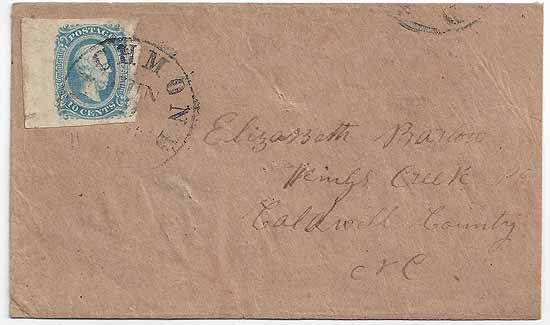 POSTAGE
10 CENTS
HMON
Elizabeth Barlow
Kings Creek
Caldwell County
NC